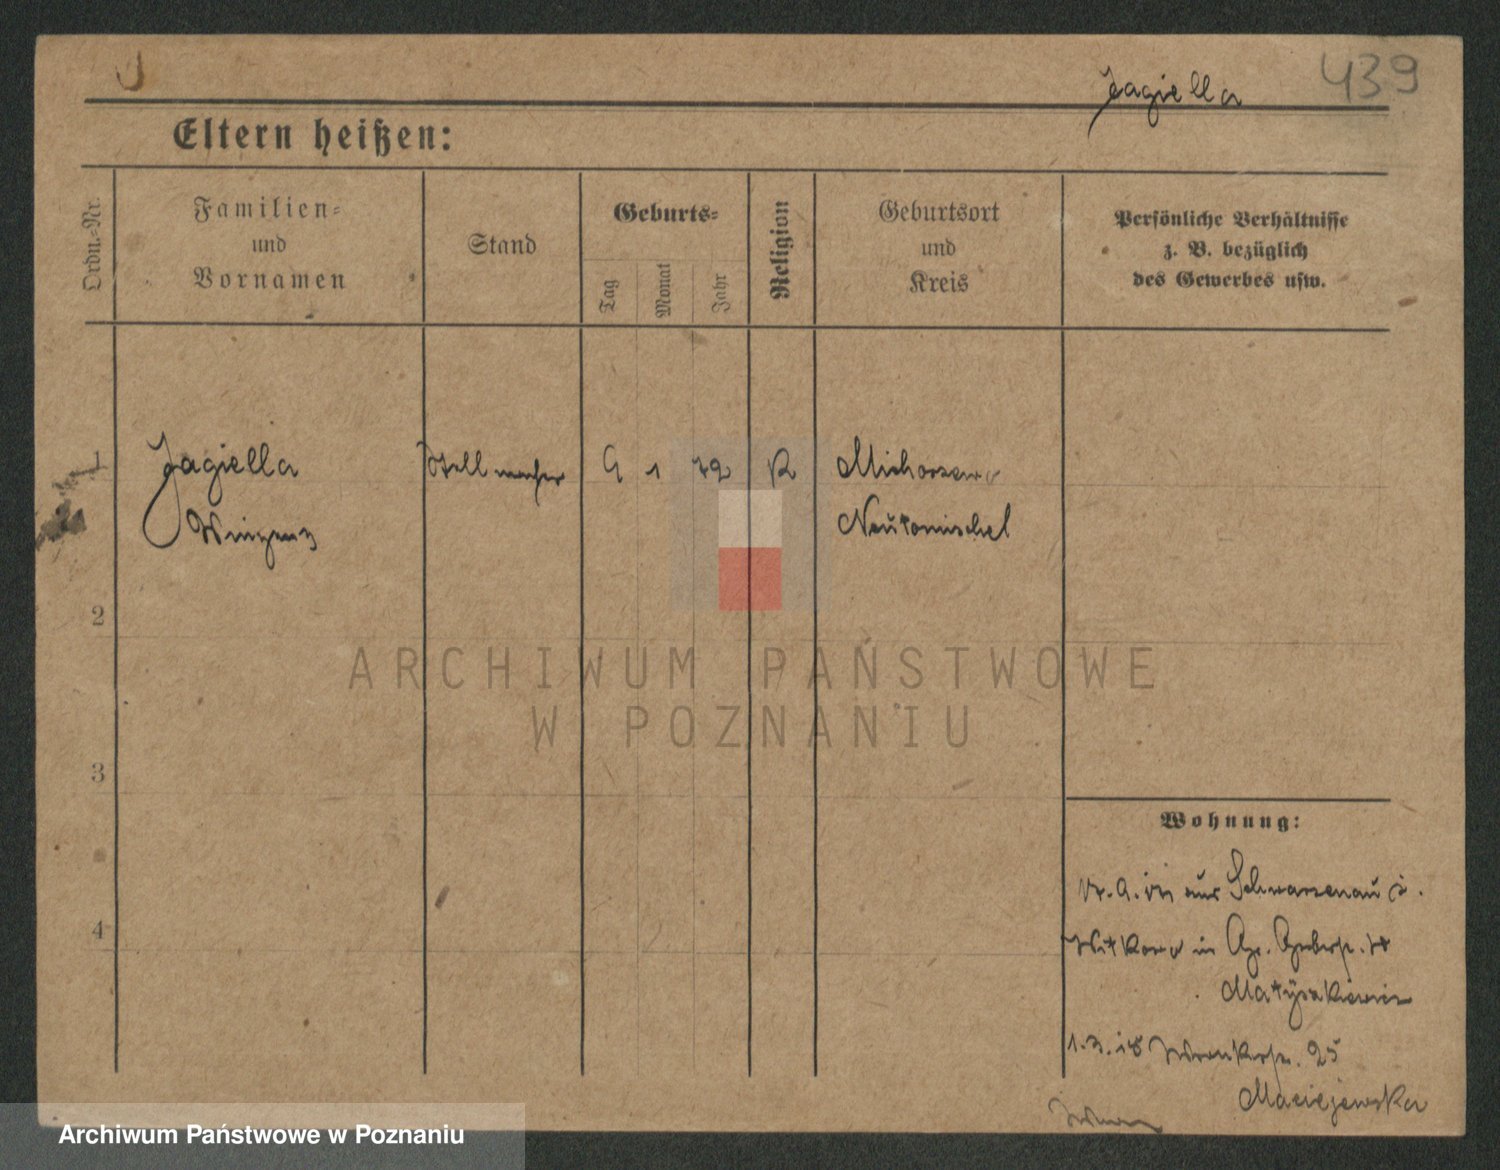 Jagiella 439
Eltern heißen:
Ordn.-Nr.
Familien-
und
Vornamen
Stand
Geburts-
Tag
Monat
Jahr
Religion
Geburtsort
und
Kreis
Persönliche Verhältnisse
z. B. bezüglich
des Gewerbes usw.
1 Jagiella Stellmacher 9 1 72 K
Winzenz Neutomischel
2
3
4
Wohnung:
aus Schwarzenau i.
Witkowo in Gr.
Matysakiewicz
1.3.18 25
Maciejewska
ARCHIWUM PAŃSTWOWE
W POZNANIU
Archiwum Państwowe w Poznaniu